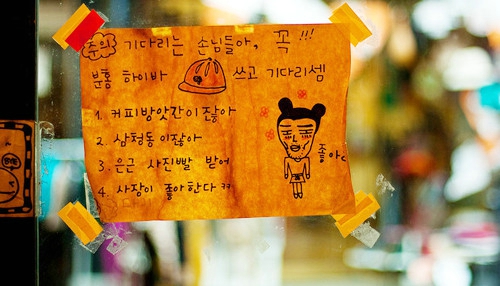 주의 기다리는 손님들아, 꼭 !!!
분홍 하이바 쓰고 기다리셈
1. 커피방앗간이잖아
2. 삼청동이잖아
3. 은근 사진빨 받어
4. 사장이 좋아한다 ㅋㅋ
좋아